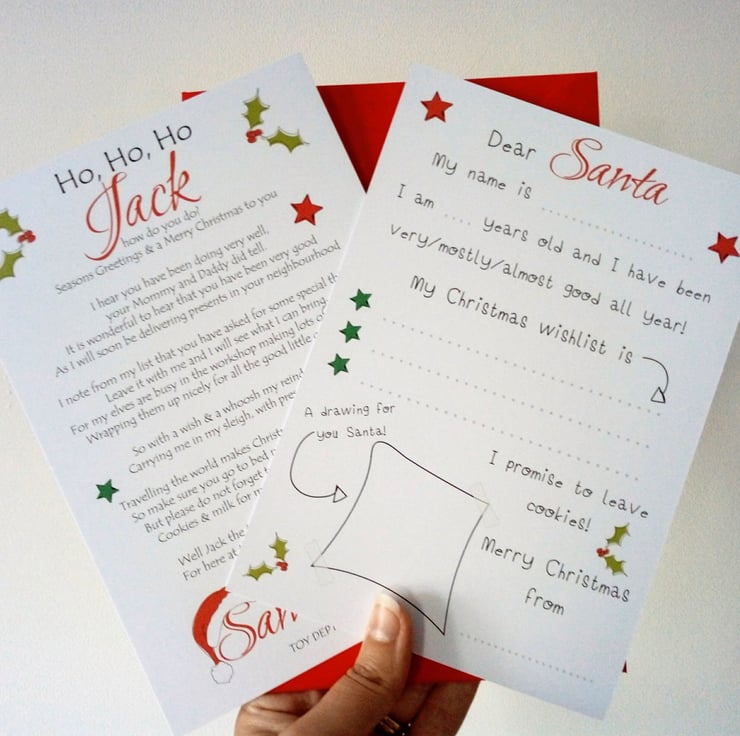 Ho, Ho, Ho
Jack
how do you do?
Seasons Greetings & a Merry Christmas to you
I hear you have been doing very well,
your Mommy and Daddy did tell.
It is wonderful to hear that you have been very good
As I will soon be delivering presents in your neighbourhood
I note from my list that you have asked for some special
Leave it with me and I will see what I can bring
For my elves are busy in the workshop making lots
Wrapping them up nicely for all the good little
So with a wish & a whoosh my
Carrying me in my sleigh, with
Travelling the world makes
So make sure you go to bed
But please do not forget
Cookies & milk for
Well Jack the
For here at
TOY
Dear Santa
My name is ....................
I am .... years old and I have been
very/mostly/almost good all year!
My Christmas wishlist is
A drawing for
you Santa!
I promise to leave
cookies!
Merry Christmas
from